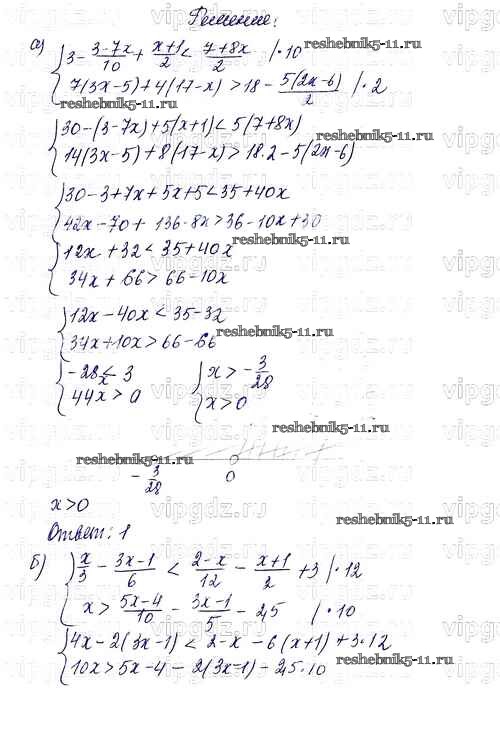 Решение:
а) { 3 - (3-7x)/10 + (x+1)/2 < (7+8x)/2 / · 10
7(3x-5)+4(17-x) > 18 - 5(2x-6)/2 / · 2
reshebnik5-11.ru
{ 30-(3-7x)+5(x+1)<5(7+8x)
14(3x-5)+8(17-x)>18·2-5(2x-6)
{ 30-3+7x+5x+5<35+40x
42x-70+136-8x>36-10x+30
reshebnik5-11.ru
{ 12x+32<35+40x
34x+66>66-10x
{ 12x-40x<35-32
34x+10x>66-66
reshebnik5-11.ru
{ -28x<3 { x>-3/28
44x>0 x>0
reshebnik5-11.ru
reshebnik5-11.ru
-3/28 0
x>0
Ответ: 1
б) { x/3 - (3x-1)/6 < (2-x)/12 - (x+1)/2 + 3 / · 12
x > (5x-4)/10 - (3x-1)/5 - 2,5 / · 10
{ 4x-2(3x-1)<2-x-6(x+1)+3·12
10x>5x-4-2(3x-1)-2,5·10
reshebnik5-11.ru